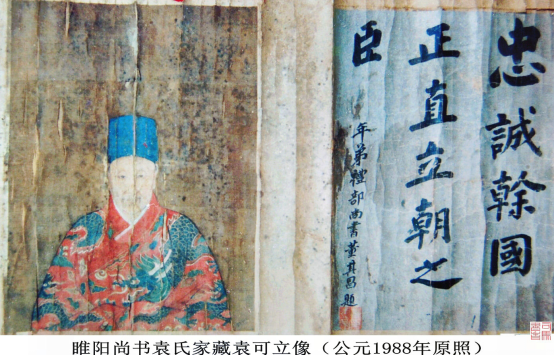 忠誠幹國
正直立朝之
臣
年弟禮部尚書董其昌題
睢阳尚书袁氏家藏袁可立像（公元1988年原照）